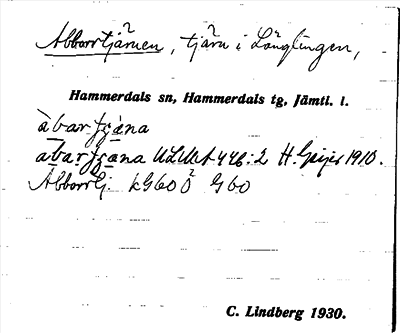 Abborrtjärnen, tjärn i Långlingen,
Hammerdals sn, Hammerdals tg, Jämtl. l.
àbarʃɟàna
abarʃɟana ULMA 446:2 H. Geijer 1910.
Abborrtj: kG60 Ö G60
C. Lindberg 1930.